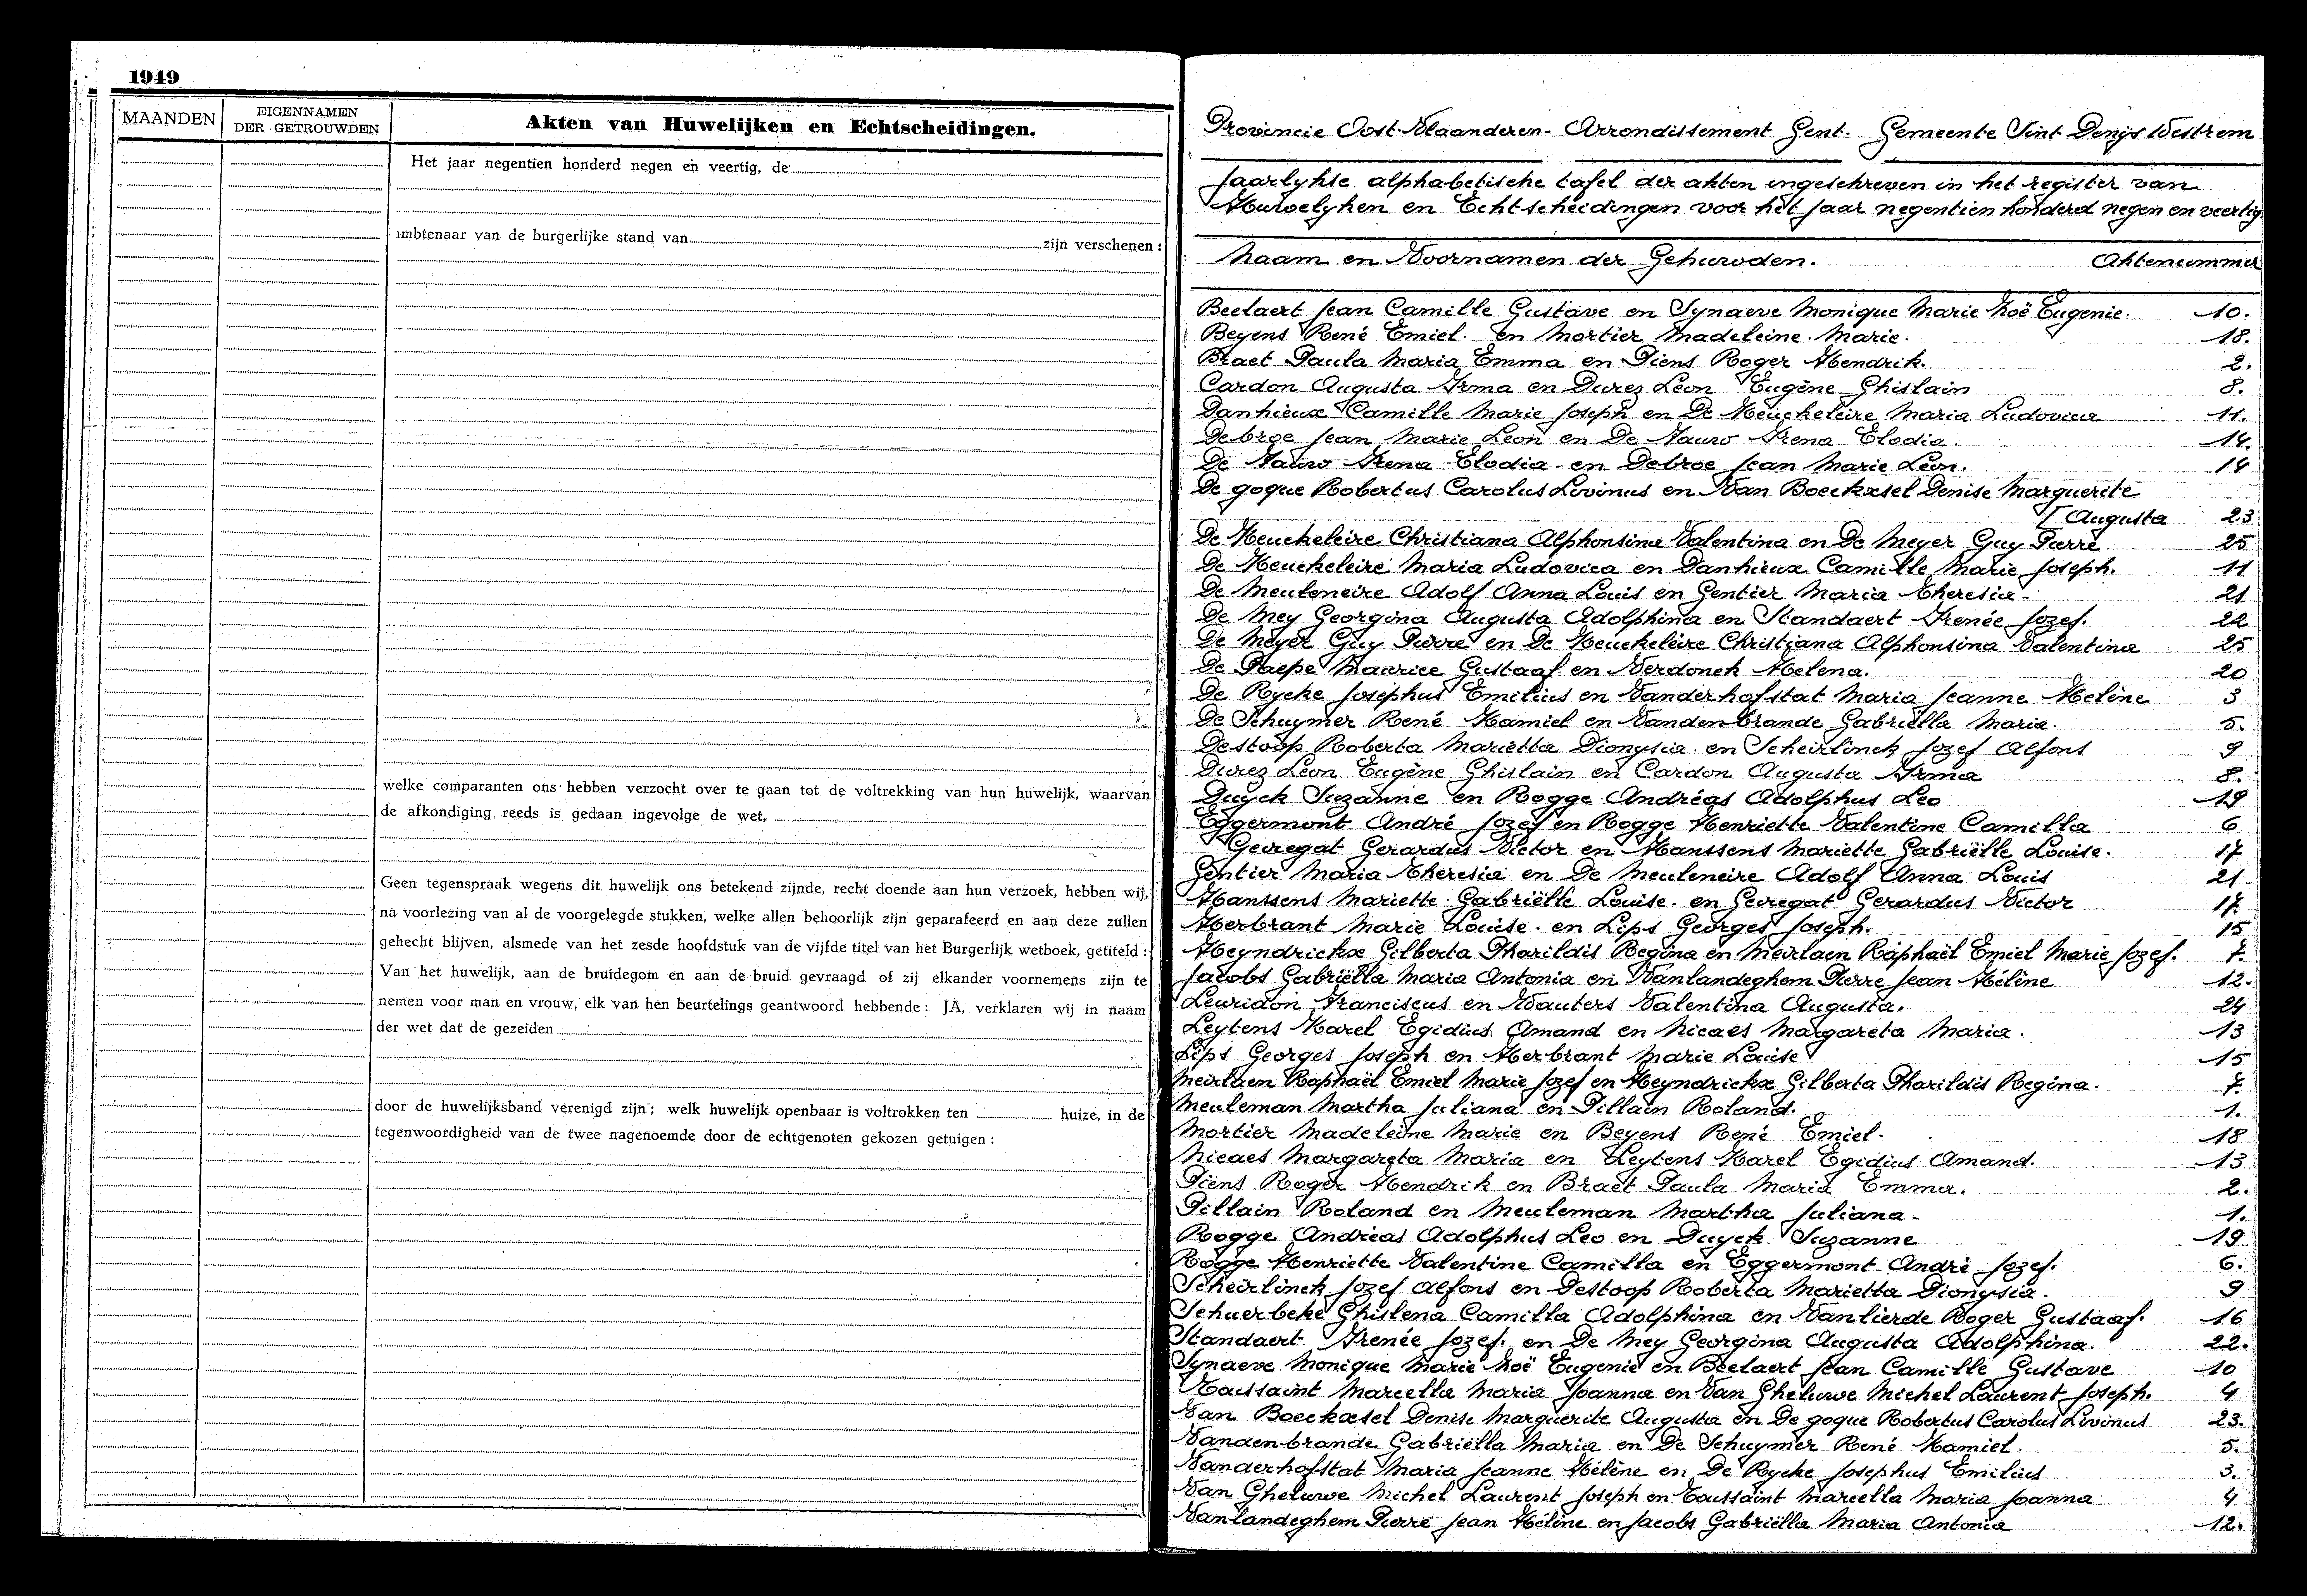 1949
MAANDEN
EIGENNAMEN
DER GETROUWDEN
Akten van Huwelijken en Echtscheidingen.
Het jaar negentien honderd negen en veertig, de
ambtenaar van de burgerlijke stand van zijn verschenen :
welke comparanten ons hebben verzocht over te gaan tot de voltrekking van hun huwelijk, waarvan
de afkondiging reeds is gedaan ingevolge de wet,
Geen tegenspraak wegens dit huwelijk ons betekend zijnde, recht doende aan hun verzoek, hebben wij,
na voorlezing van al de voorgelegde stukken, welke allen behoorlijk zijn geparafeerd en aan deze zullen
gehecht blijven, alsmede van het zesde hoofdstuk van de vijfde titel van het Burgerlijk wetboek, getiteld :
Van het huwelijk, aan de bruidegom en aan de bruid gevraagd of zij elkander voornemens zijn te
nemen voor man en vrouw, elk van hen beurtelings geantwoord hebbende : JA, verklaren wij in naam
der wet dat de gezeiden
door de huwelijksband verenigd zijn ; welk huwelijk openbaar is voltrokken ten huize, in de
tegenwoordigheid van de twee nagenoemde door de echtgenoten gekozen getuigen :
Provincie Oost-Vlaanderen - Arrondissement Gent. Gemeente Sint Denijs Westrem
Jaarlykse alphabetische tafel der akten ingeschreven in het register van
Huwelyken en Echtscheidingen voor het jaar negentien honderd negen en veertig
Naam en Voornamen der Gehuwden. Aktenummer
Beelaert Jean Camille Gustave en Synaeve Monique Marie Noë Eugenie. 10.
Beyens René Emiel. en Mortier Madeleine Marie. 18.
Braet Paula Maria Emma en Piens Roger Hendrik. 2.
Cardon Augusta Irma en Durez Leon Eugène Ghislain 8.
Danhieux Camille Marie Joseph en De Keuckeleire Maria Ludovica 11.
Debroe Jean Marie Leon en De Fauw Irena Elodia. 14.
De Fauw Irena Elodia. en Debroe Jean Marie Leon. 14
De goque Robertus Carolus Lovinus en Van Boeckxsel Denise Marguerite
[Augusta 23
De Keuckeleire Christiana Alphonsina Valentina en De Meyer Guy Pierre 25
De Keuckeleire Maria Ludovica en Danhieux Camille Marie Joseph. 11
De Meuleneire Adolf Anna Louis en Gentier Maria Theresia. 21
De Mey Georgina Augusta Adolphina en Standaert Irenée Jozef. 22
De Meyer Guy Pierre en De Keuckeleire Christiana Alphonsina Valentina 25
De Paepe Maurice Gustaaf en Verdonck Helena. 20
De Rycke Josephus Emilius en Vanderhofstat Maria Jeanne Helène 3
De Schuymer René Kamiel en Vandenbrande Gabriëlla Maria. 5.
Destoop Roberta Marietta Dionysia. en Scheirlinck Jozef Alfons 9
Durez Leon Eugène Ghislain en Cardon Augusta Irma 8.
Duyck Suzanne en Rogge Andréas Adolphus Leo 19
Eggermont André Jozef en Rogge Henriette Valentine Camilla 6
Gevregat Gerardus Victor en Hanssens Mariette Gabriëlle Louise. 17
Gentier Maria Theresia en De Meuleneire Adolf Anna Louis 21
Hanssens Mariette Gabriëlle Louise. en Gevregat Gerardus Victor 17.
Herbrant Marie Louise. en Lips Georges Joseph. 15
Heyndrickx Gilberta Pharildis Regina en Meirlaen Raphaël Emiel Marie Jozef. 7.
Jacobs Gabriëlla Maria Antonia en Vanlandeghem Pierre Jean Hélène 12.
Leuridon Franciscus en Wauters Valentina Augusta. 24
Leytens Karel Egidius Amand en Nicaes Margareta Maria. 13
Lips Georges Joseph en Herbrant Marie Louise 15
Meirlaen Raphaël Emiel Marie Jozef en Heyndrickx Gilberta Pharildis Regina. 7.
Meuleman Martha Juliana en Pillain Roland. 1.
Mortier Madeleine Marie en Beyens René Emiel. 18
Nicaes Margareta Maria en Leytens Karel Egidius Amand. 13
Piens Roger Hendrik en Braet Paula Maria Emma. 2.
Pillain Roland en Meuleman Martha Juliana. 1.
Rogge Andréas Adolphus Leo en Duyck Suzanne 19
Rogge Henriette Valentine Camilla en Eggermont André Jozef. 6.
Scheirlinck Jozef Alfons en Destoop Roberta Marietta Dionysia. 9
Schuerbeke Ghislena Camilla Adolphina en Vanlierde Roger Gustaaf. 16
Standaert Irenée Jozef. en De Mey Georgina Augusta Adolphina. 22.
Synaeve Monique Marie Noë Eugenie en Beelaert Jean Camille Gustave 10
Toussaint Marcella Maria Joanna en Van Gheluwe Michel Laurent Joseph. 4
Van Boeckxsel Denise Marguerite Augusta en De goque Robertus Carolus Lovinus 23.
Vandenbrande Gabriëlla Maria en De Schuymer René Kamiel. 5.
Vanderhofstat Maria Jeanne Hélène en De Rycke Josephus Emilius 3.
Van Gheluwe Michel Laurent Joseph en Toussaint Marcella Maria Joanna 4
Vanlandeghem Pierre Jean Hélène en Jacobs Gabriëlla Maria Antonia 12.